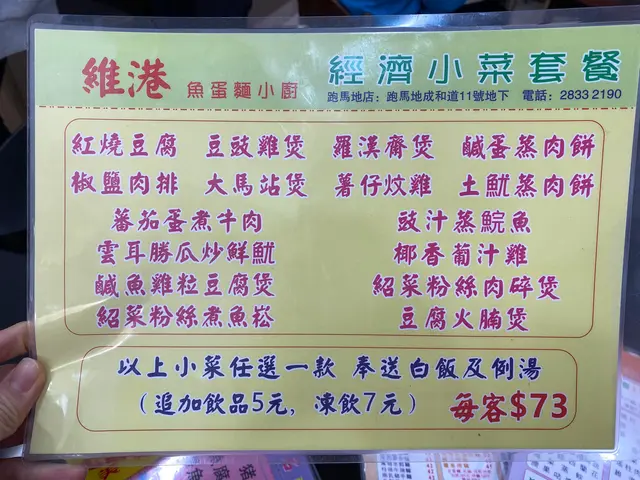 維港 魚蛋麵小廚 經濟小菜套餐
跑馬地店：跑馬地成和道11號地下 電話：2833 2190
紅燒豆腐 豆豉雞煲 羅漢齋煲 鹹蛋蒸肉餅
椒鹽肉排 大馬站煲 薯仔炆雞 土魷蒸肉餅
蕃茄蛋煮牛肉 豉汁蒸鯇魚
雲耳勝瓜炒鮮魷 椰香葡汁雞
鹹魚雞粒豆腐煲 紹菜粉絲肉碎煲
紹菜粉絲煮魚菘 豆腐火腩煲
以上小菜任選一款 奉送白飯及例湯
（追加飲品5元，凍飲7元） 每客$73